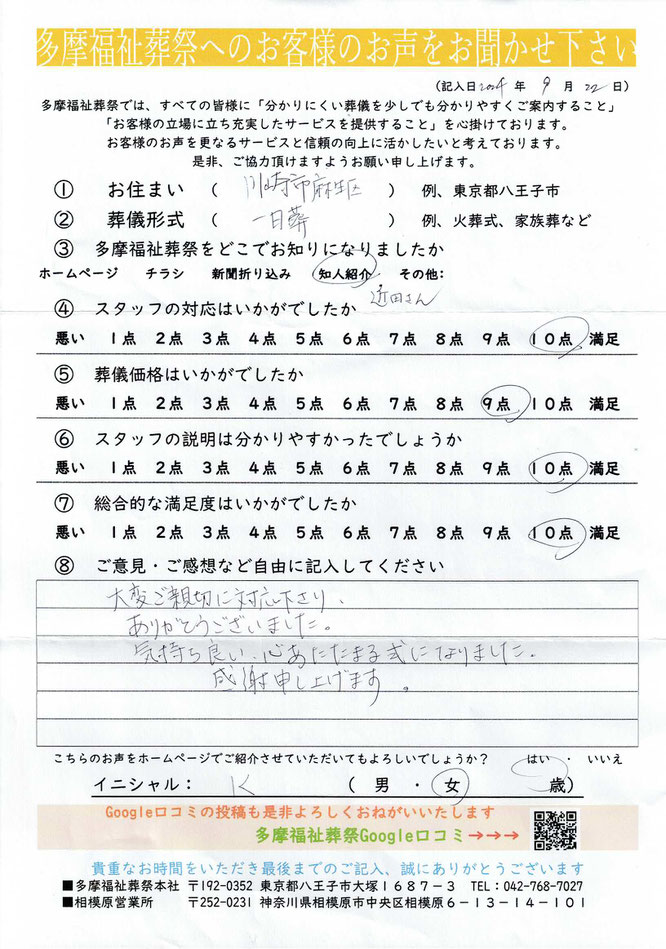 多摩福祉葬祭へのお客様のお声をお聞かせ下さい
(記入日2024 年 9 月 22 日)
多摩福祉葬祭では、すべての皆様に「分かりにくい葬儀を少しでも分かりやすくご案内すること」
「お客様の立場に立ち充実したサービスを提供すること」を心掛けております。
お客様のお声を更なるサービスと信頼の向上に活かしたいと考えております。
是非、ご協力頂けますようお願い申し上げます。
① お住まい ( 川崎市麻生区 ) 例、東京都八王子市
② 葬儀形式 ( 一日葬 ) 例、火葬式、家族葬など
③ 多摩福祉葬祭をどこでお知りになりましたか
ホームページ チラシ 新聞折り込み 知人紹介 その他:
近田さん
④ スタッフの対応はいかがでしたか
悪い 1点 2点 3点 4点 5点 6点 7点 8点 9点 10点 満足
⑤ 葬儀価格はいかがでしたか
悪い 1点 2点 3点 4点 5点 6点 7点 8点 9点 10点 満足
⑥ スタッフの説明は分かりやすかったでしょうか
悪い 1点 2点 3点 4点 5点 6点 7点 8点 9点 10点 満足
⑦ 総合的な満足度はいかがでしたか
悪い 1点 2点 3点 4点 5点 6点 7点 8点 9点 10点 満足
⑧ ご意見・ご感想など自由に記入してください
大変ご親切に対応下さり、
ありがとうございました。
気持ち良い、心あたたまる式になりました。
感謝申し上げます。
こちらのお声をホームページでご紹介させていただいてもよろしいでしょうか? はい ・ いいえ
イニシャル: K ( 男 ・ 女 歳)
Google口コミの投稿も是非よろしくおねがいいたします
多摩福祉葬祭Google口コミ→→→
貴重なお時間をいただき最後までのご記入、誠にありがとうございます
■多摩福祉葬祭本社 〒192-0352 東京都八王子市大塚1687-3 TEL:042-768-7027
■相模原営業所 〒252-0231 神奈川県相模原市中央区相模原6-13-14-101